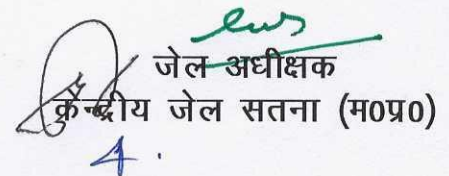 जेल अधीक्षक
केन्द्रीय जेल सतना (म0प्र0)
4.